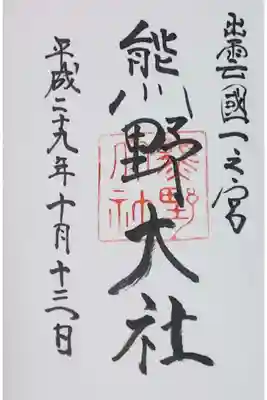 出雲國一之宮
熊野大社
熊野大社
平成二十九年十月十三日